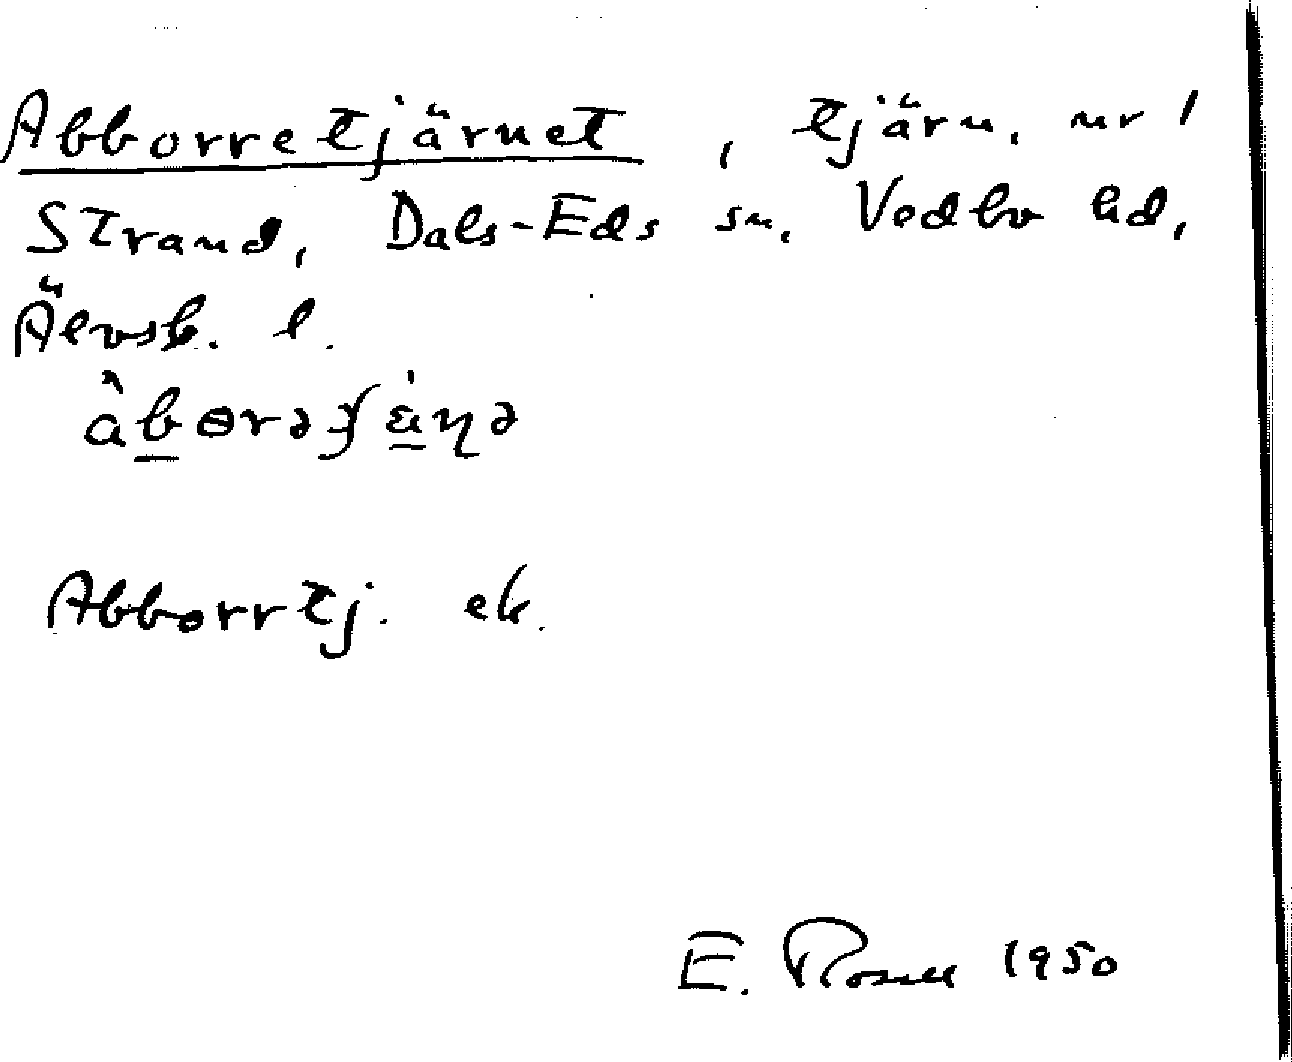 Abborretjärnet, tjärn, nr 1
Strand, Dals-Eds sn, Vedbo hd,
Älvsb. l.
Abborrtj. ek.
E. Rosell 1950